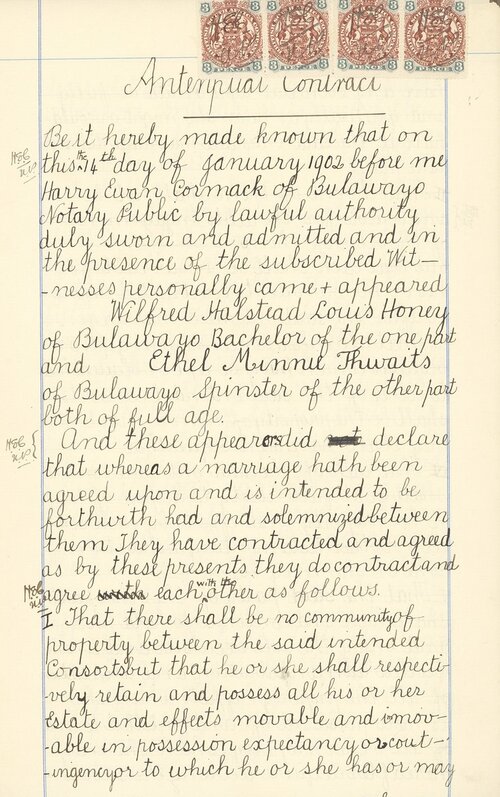 3 3 3 3 3 3 3 3
Antenptial Contract
Be it hereby made known that on
this the 14th day of January 1902 before me
Harry Ewan Cormack of Bulawayo
Notary Public by lawful authority
duly sworn and admitted and in
the presence of the subscribed Wit-
-nesses personally came + appeared
Wilfred Halstead Louis Honey
of Bulawayo Bachelor of the one part
and Ethel Minnie Thwaits
of Bulawayo Spinster of the other part
both of full age.
And these appearers did not declare
that whereas a marriage hath been
agreed upon and is intended to be
forthwith had and solemnized between
them They have contracted and agreed
as by these presents they do contract and
agree with each with the other as follows.
I That there shall be no community of
property between the said intended
Consorts but that he or she shall respecti-
-vely retain and possess all his or her
Estate and effects movable and imov-
-able in possession expectancy or cont-
-ingency or to which he or she has or may